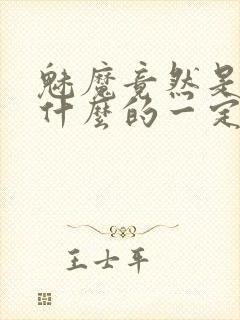 魅魔竟然是
什麼的一定
王士平